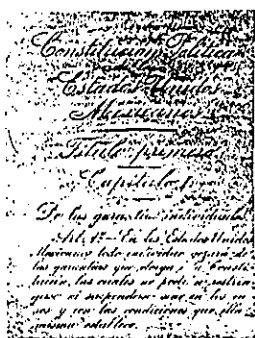 Constitución Política
Estados Unidos
Mexicanos
Título primero
Capítulo I
De las garantías individuales
Art. 1º— En los Estados Unidos
Mexicanos todo individuo gozará de
las garantías que otorga esta Consti-
tución, las cuales no podrán restrin-
girse ni suspenderse, sino en los ca-
sos y con las condiciones que ella
misma establece.